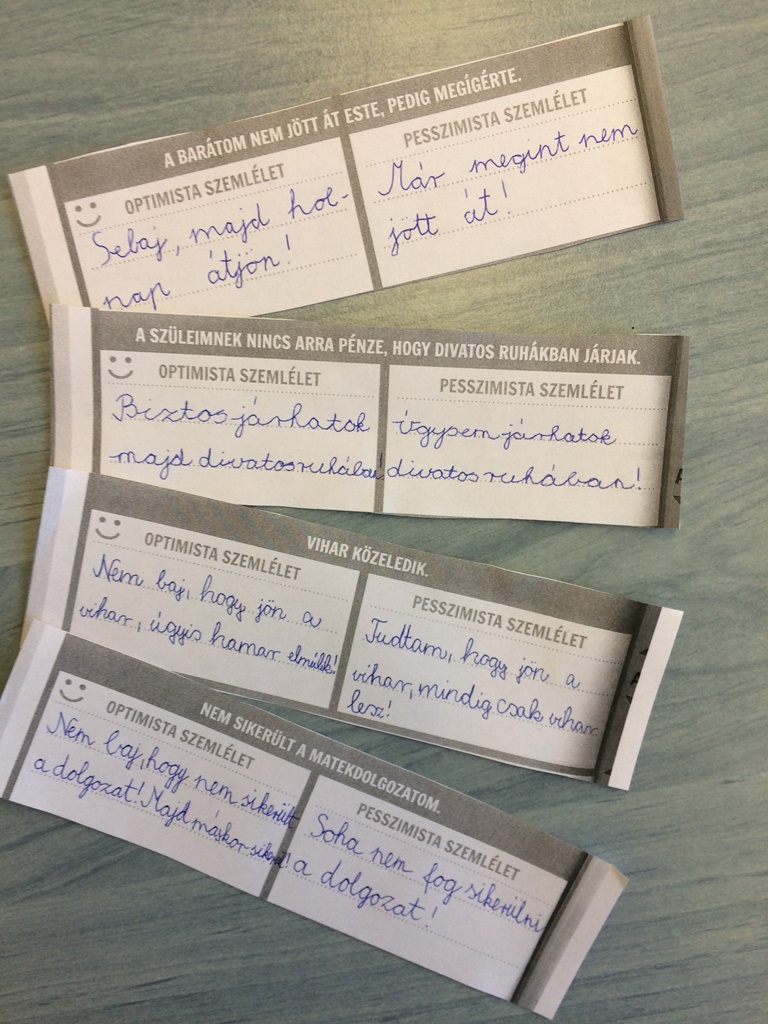 A BARÁTOM NEM JÖTT ÁT ESTE, PEDIG MEGÍGÉRTE.
OPTIMISTA SZEMLÉLET
Sebaj, majd hol-
nap átjön!
PESSZIMISTA SZEMLÉLET
Már megint nem
jött át!
A SZÜLEIMNEK NINCS ARRA PÉNZE, HOGY DIVATOS RUHÁKBAN JÁRJAK.
OPTIMISTA SZEMLÉLET
Biztos járhatok
majd divatos ruhában!
PESSZIMISTA SZEMLÉLET
Úgysem járhatok
divatos ruhában!
VIHAR KÖZELEDIK.
OPTIMISTA SZEMLÉLET
Nem baj, hogy jön a
vihar, úgyis hamar elmúlik!
PESSZIMISTA SZEMLÉLET
Tudtam, hogy jön a
vihar, mindig csak vihar
lesz!
NEM SIKERÜLT A MATEKDOLGOZATOM.
OPTIMISTA SZEMLÉLET
Nem baj, hogy nem sikerült
a dolgozat! Majd máskor sikerül!
PESSZIMISTA SZEMLÉLET
Soha nem fog sikerülni
a dolgozat!